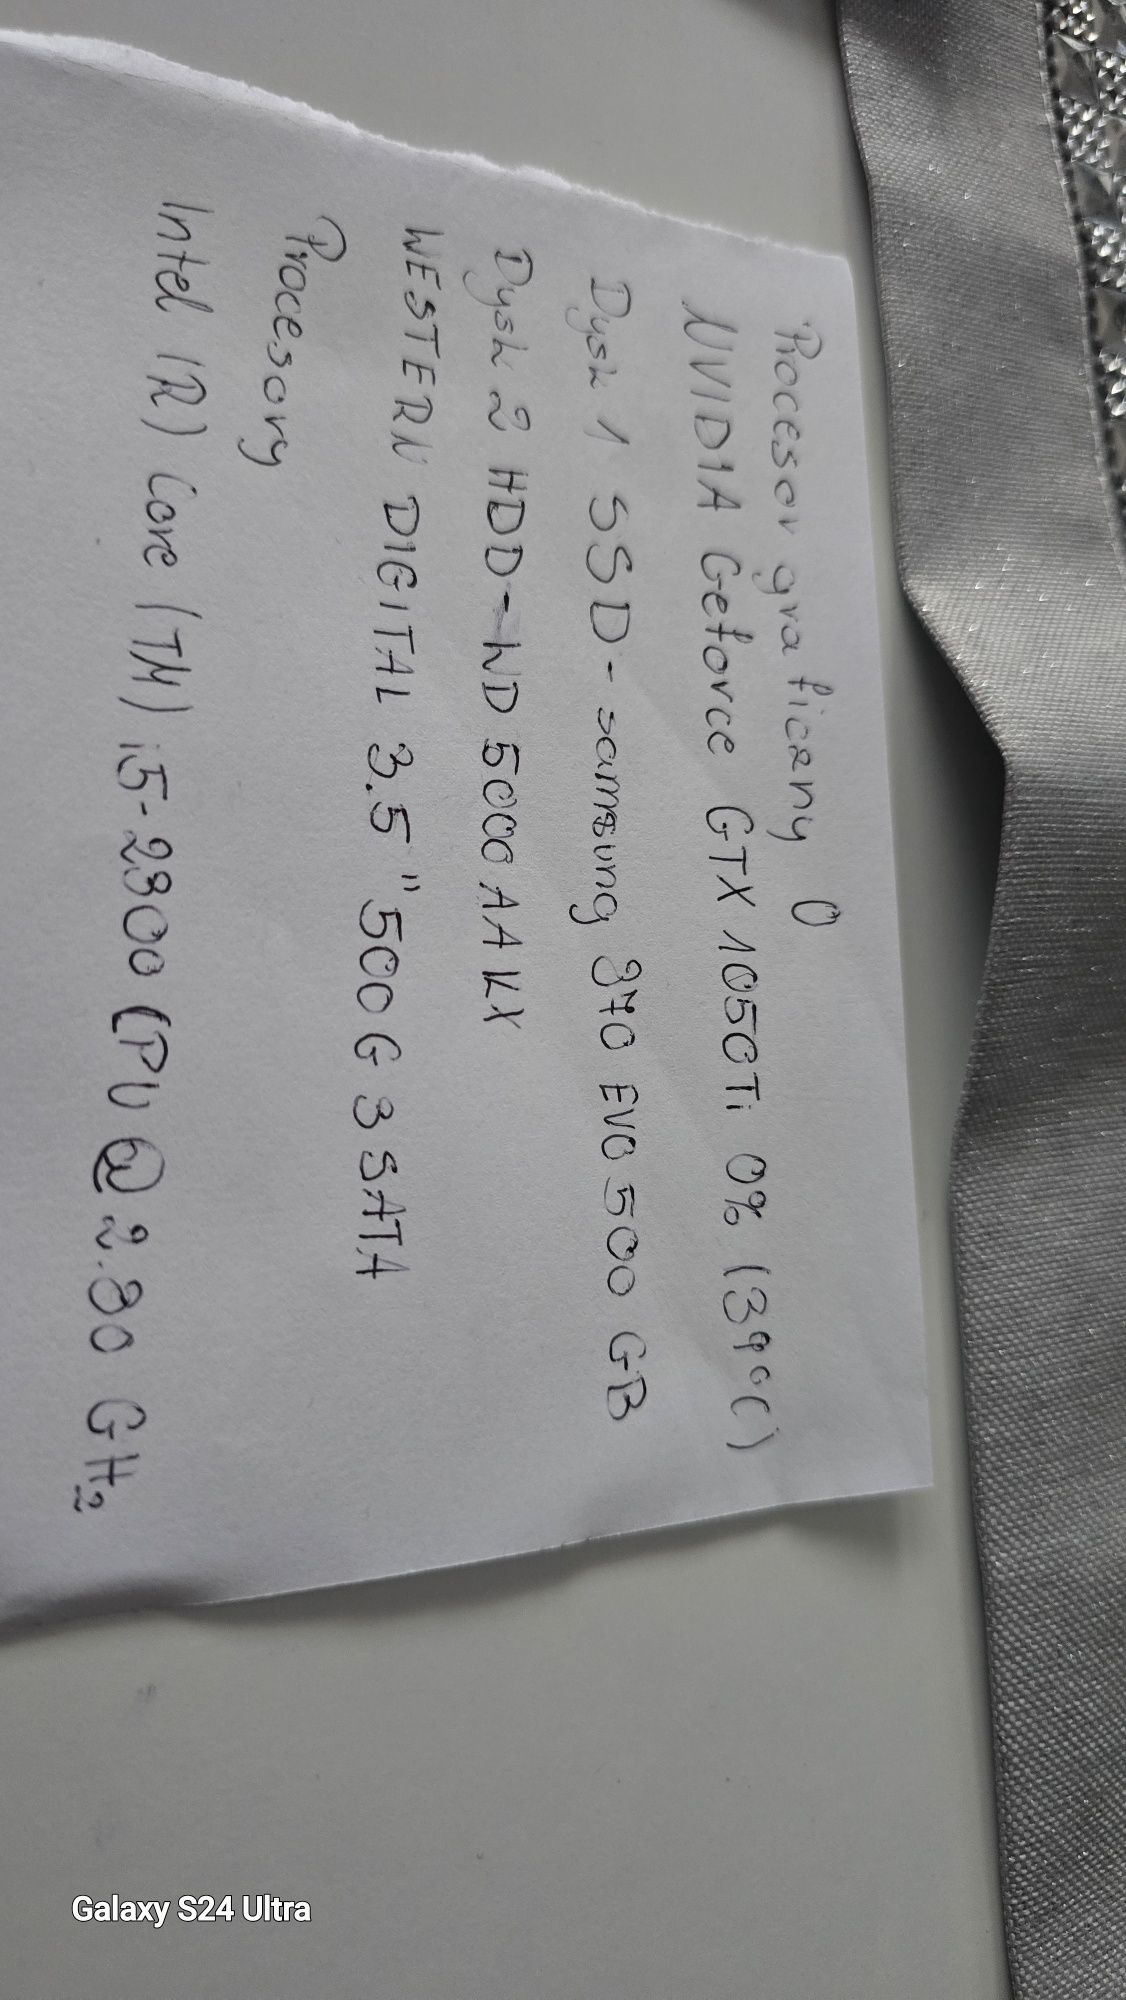 Procesor graficzny 0
NVIDIA Geforce GTX 1050Ti 0% (39°C)
Dysk 1 SSD-samsung 870 EVO 500 GB
Dysk 2 HDD-WD 5000AAKX
WESTERN DIGITAL 3.5" 500G 3 SATA
Procesory
Intel (R) Core (TM) i5-2300 CPU @ 2.80 GHz
Galaxy S24 Ultra